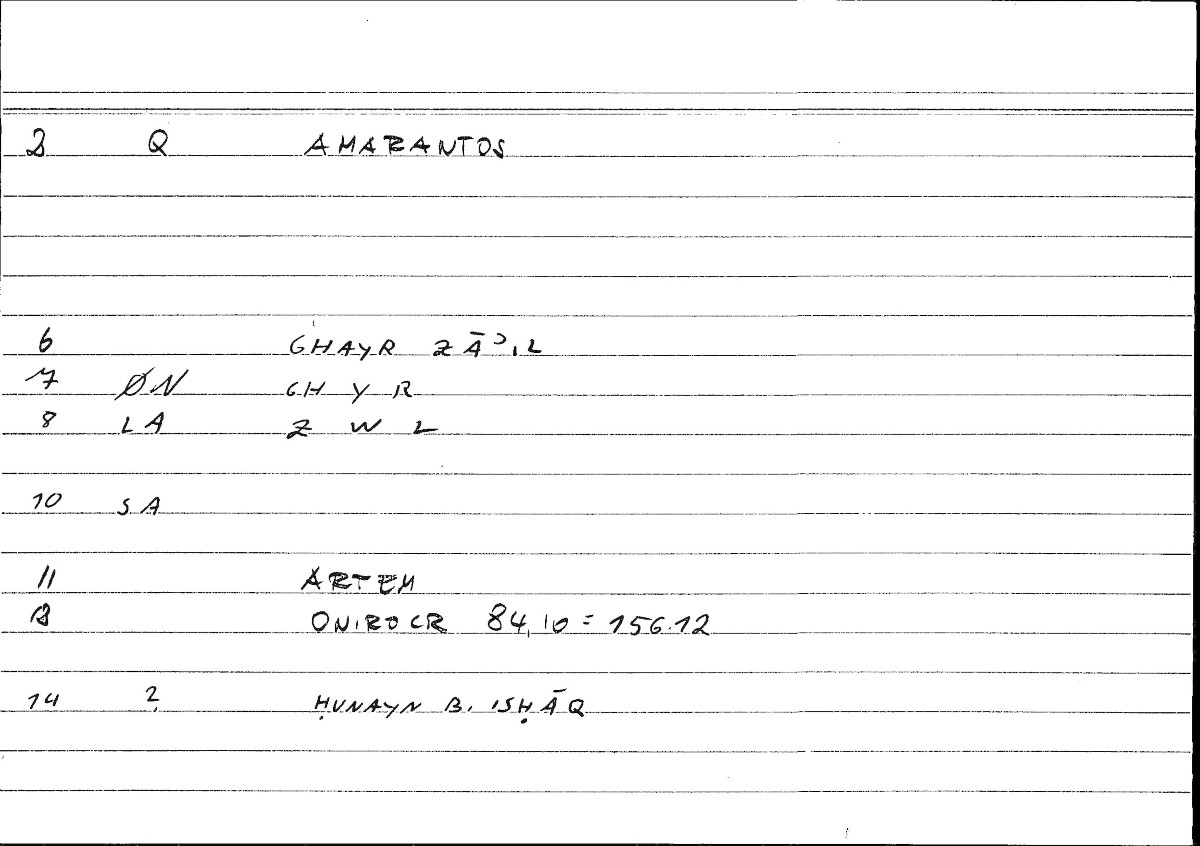 2 Q AMARANTOS
6 GHAYR ZĀʾIL
7 ØN GH Y R
8 LA Z W L
10 SA
11 ARTEM
12 ONIROCR 84,10 = 156.12
14 ? ḤUNAYN B. ISḤĀQ